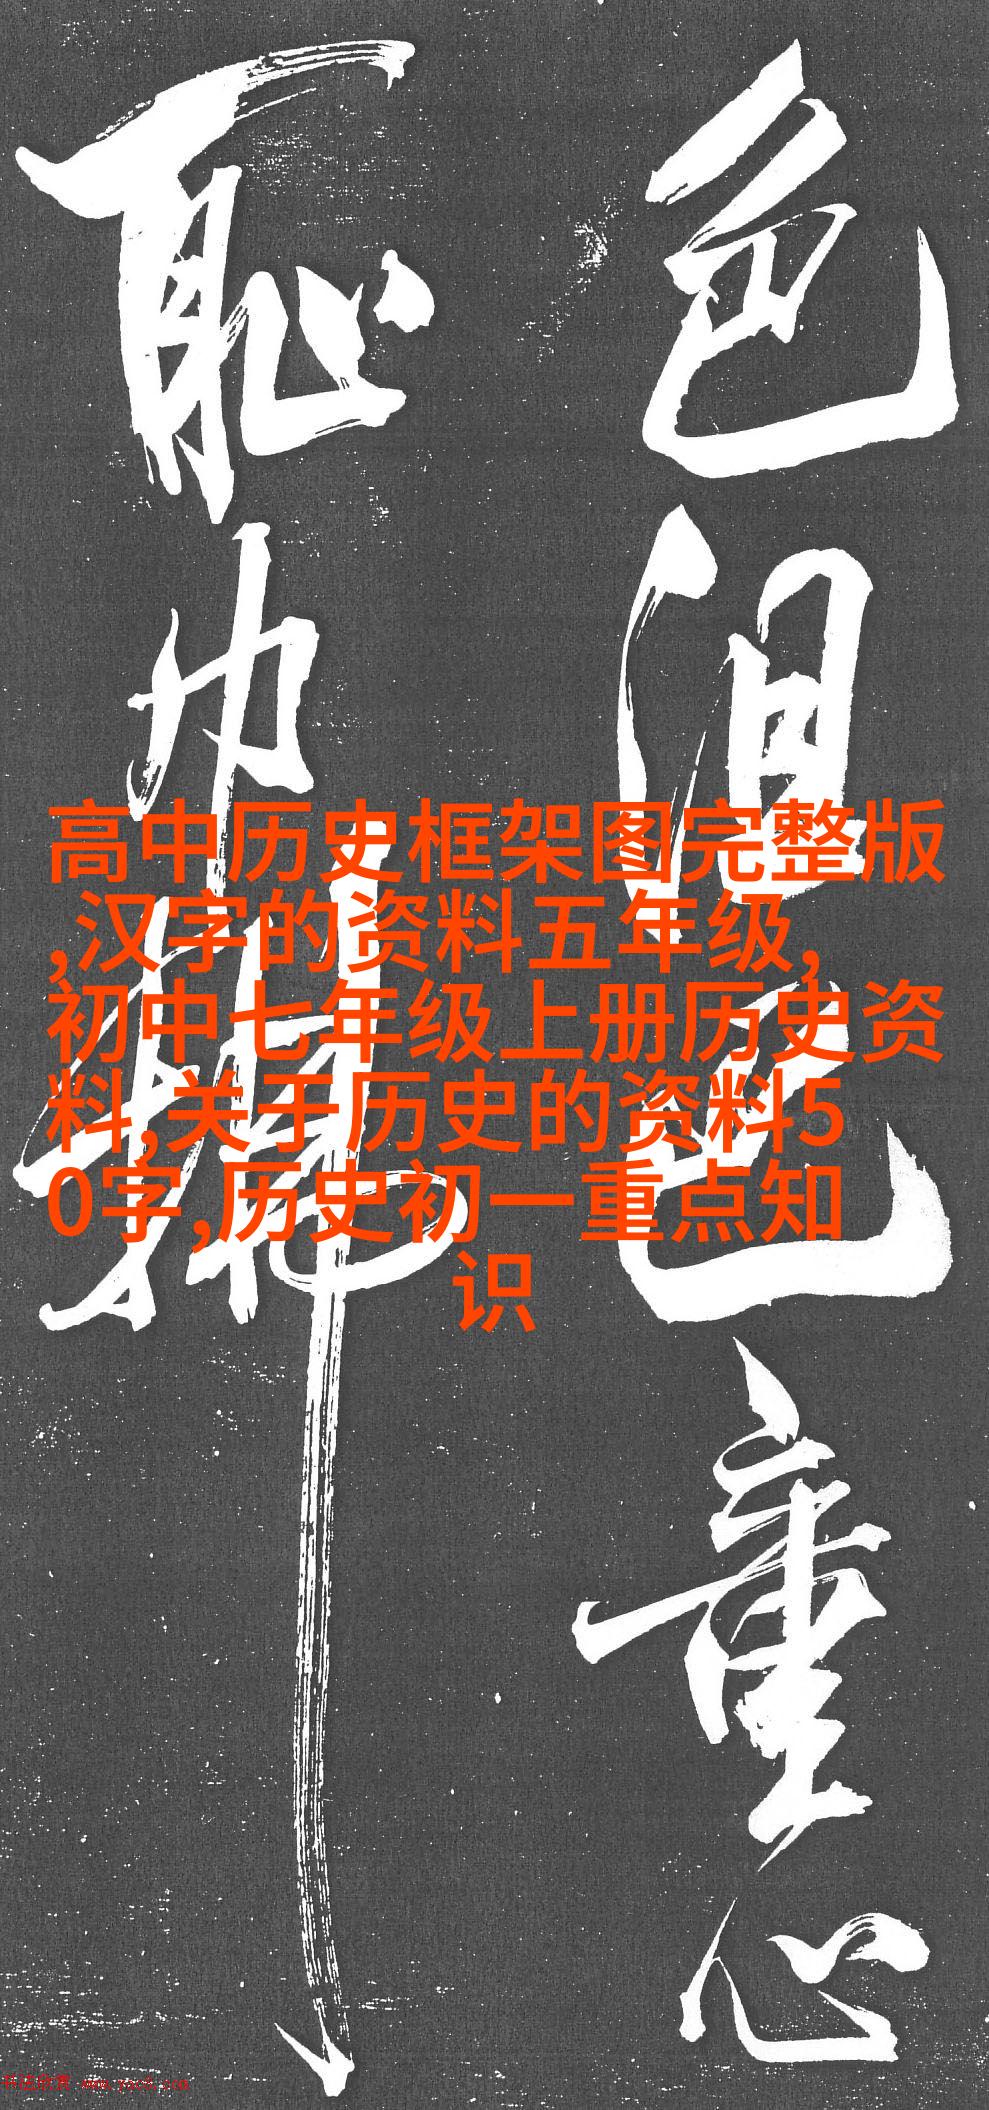 高中历史框架图完整版
,汉字的资料五年级,
初中七年级上册历史资
料,关于历史的资料5
0字,历史初一重点知
识
色沮色重心
耻
书法欣赏 www.yac8.com